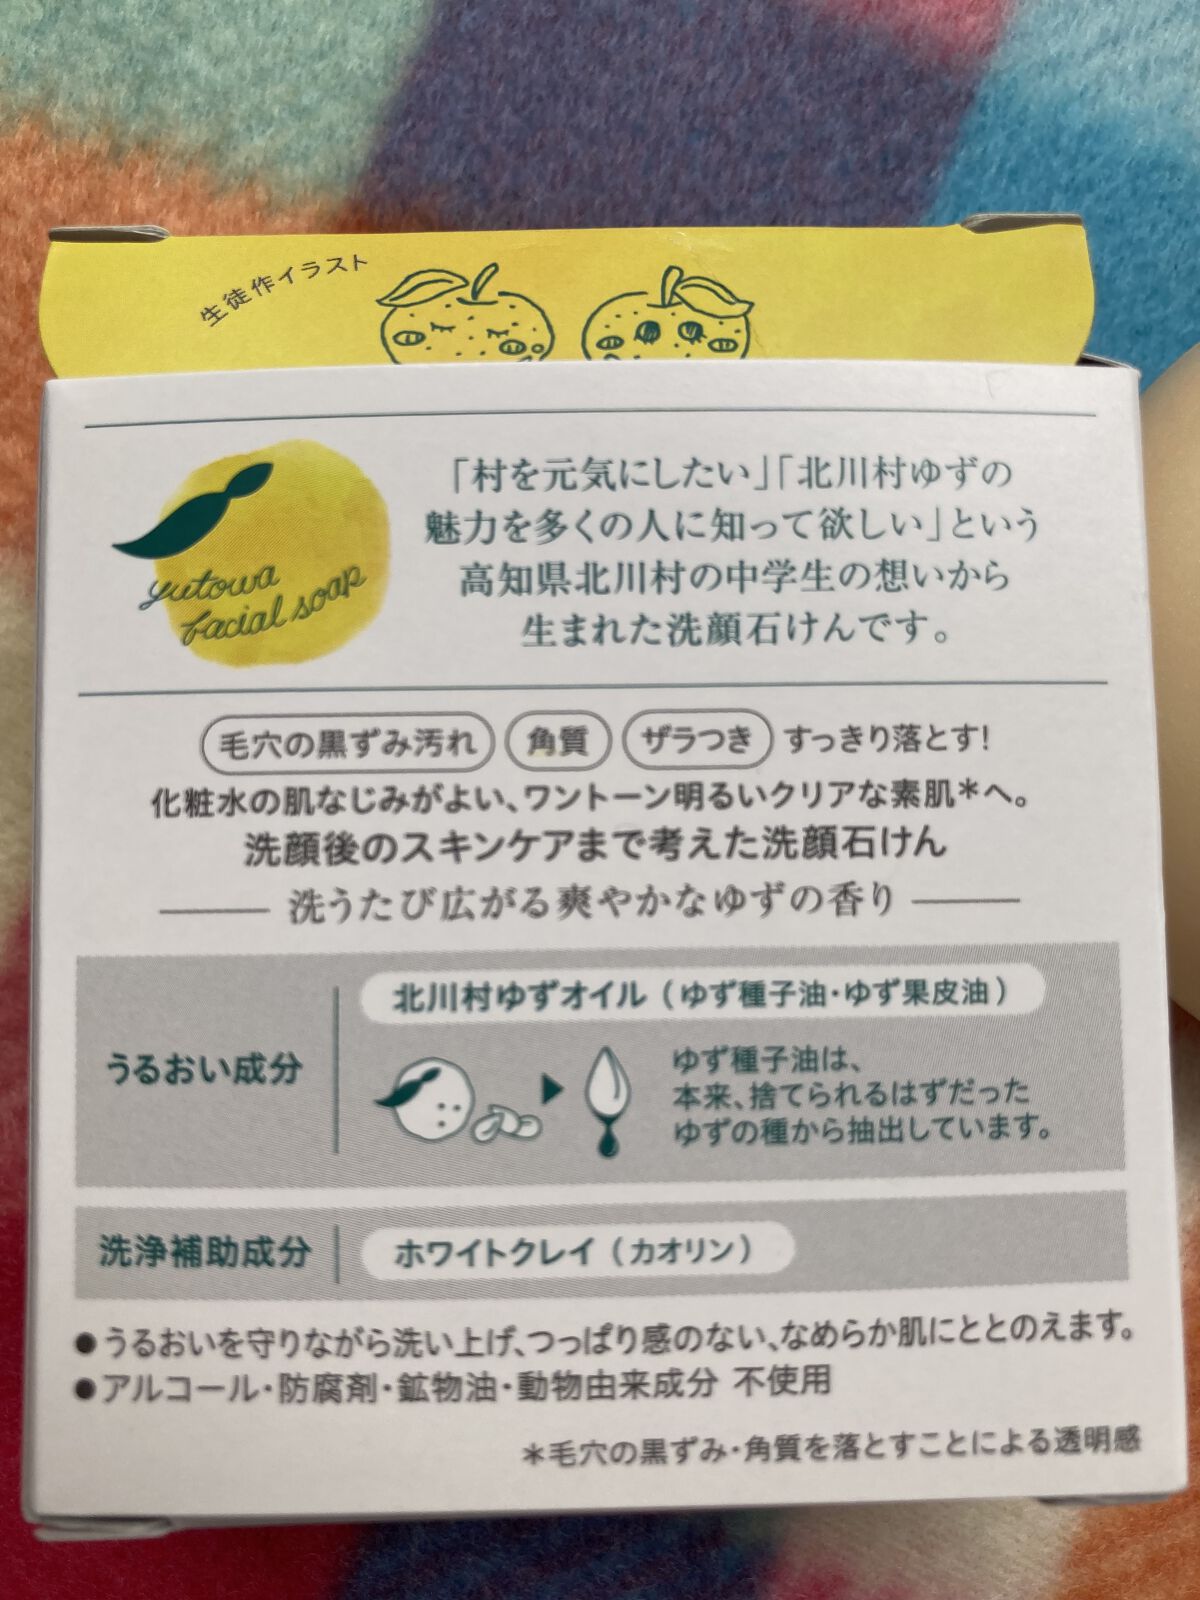 生徒作イラスト
「村を元気にしたい」「北川村ゆずの
魅力を多くの人に知って欲しい」という
高知県北川村の中学生の想いから
生まれた洗顔石けんです。
yutowa
facial soap
毛穴の黒ずみ汚れ 角質 ザラつき すっきり落とす!
化粧水の肌なじみがよい、ワントーン明るいクリアな素肌*へ。
洗顔後のスキンケアまで考えた洗顔石けん
洗うたび広がる爽やかなゆずの香り
うるおい成分
北川村ゆずオイル(ゆず種子油・ゆず果皮油)
ゆず種子油は、
本来、捨てられるはずだった
ゆずの種から抽出しています。
洗浄補助成分 ホワイトクレイ(カオリン)
●うるおいを守りながら洗い上げ、つっぱり感のない、なめらか肌にととのえます。
●アルコール・防腐剤・鉱物油・動物由来成分 不使用
*毛穴の黒ずみ・角質を落とすことによる透明感